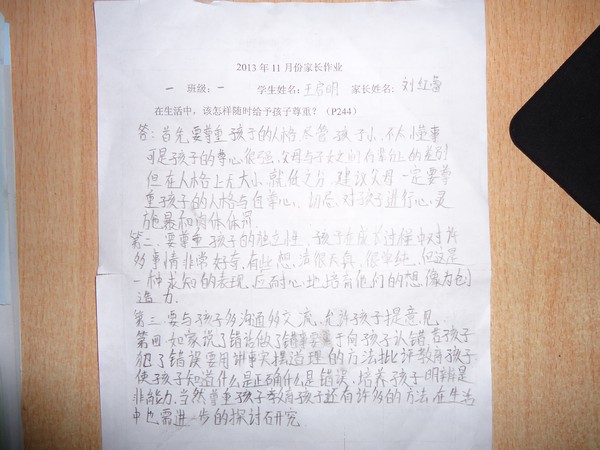 2013年11月份家长作业
一 班级:一 学生姓名:王启明 家长姓名:刘红蕾
在生活中,该怎样随时给予孩子尊重?(P244)
答:首先要尊重孩子的人格尽管孩子小,不懂事
可是孩子的尊心很强,父母与子女之间有辈分上的差别
但在人格上无大小,就低之分,建议父母一定要尊
重孩子的人格与自尊心、切忌,对孩子进行心灵
施暴和肉体体罚
第二、要尊重孩子的独立性,孩子在成长过程中对许
多事情非常好奇,有些想法很天真、很单纯,但这是
一种求知的表现,应耐心地培育他们的想像为创
造力.
第三要与孩子多沟通多交流,允许孩子提意见
第四如家说了错话做了错事要于向孩子认错在孩子
犯了错误要用讲事实摆道理的方法批评教育孩子
使孩子知道什么是正确什么是错误,培养孩子明辨是
非能力.当然尊重孩子教育孩子还有许多的方法在生活
中也需进一步的探讨研究